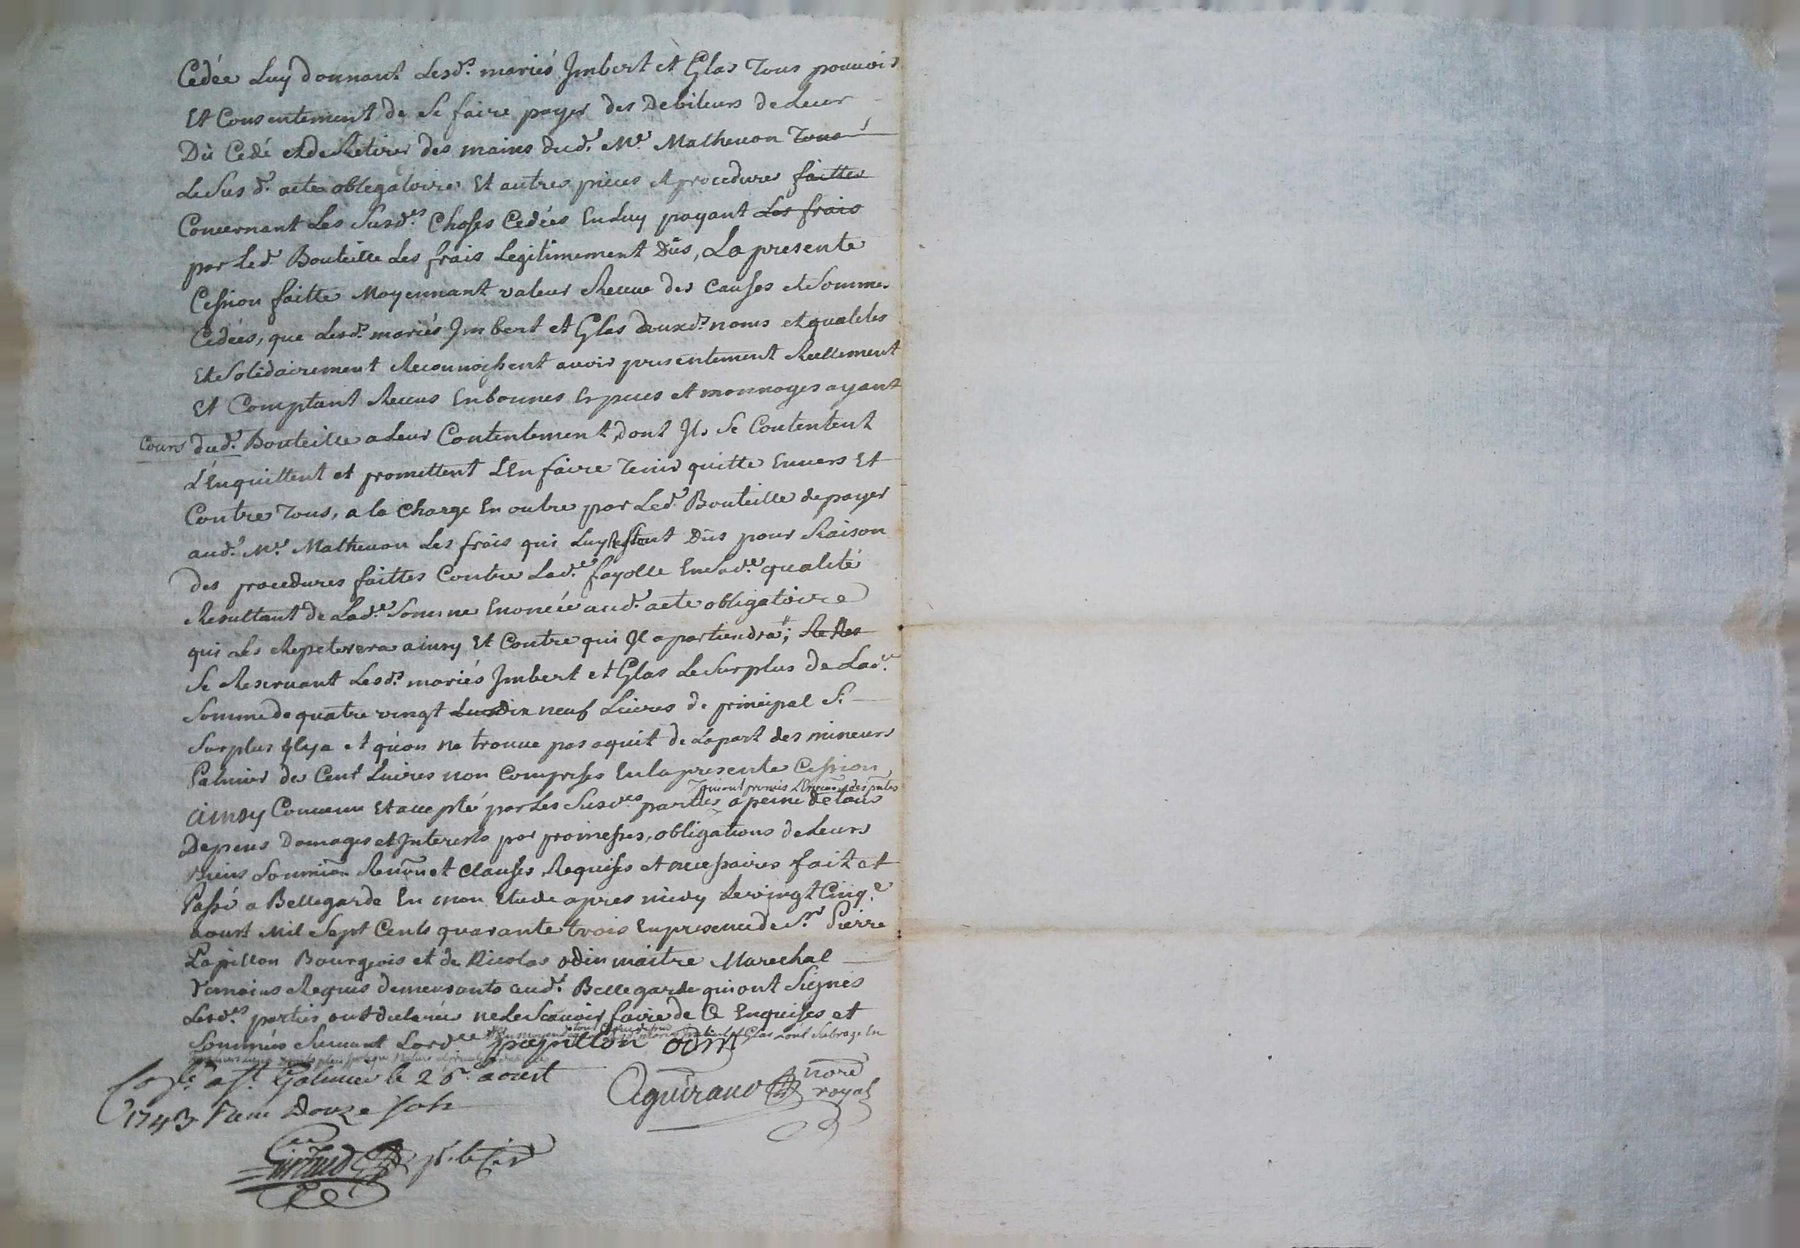 Cedée Luy donnant Lesd.s mariés Jmbert et Glas Tous pouvoirs
Et Consentement de Se faire payer des Debiteurs de Leur
Dù Cedé et de Retirer des mains dud.t M.e Matheuon Tous
Le Sus d.t acte obligatoire Et autres pieces et procedures faittes
Concernant Les Susd.es Choses Cedées En Luy payant Les frais
par Led.t Bouteille Les frais Legitimement Dùs, La presente
Cession faitte Moyennant valeur Recue des Causes et Sommes
Cedées, que Lesd.s mariés Jmbert et Glas auxd.s noms et qualités
Et Solidairement Reconnoissent avoir presentement Reellement
Et Comptant Receus En bonnes Especes et monnoyes ayant
Cours dud.t Bouteille a Leur Contentement, dont Jls Se Contentent
L'Enquittent et promettent L'En faire Tenir quitte Envers Et
Contre Tous, a la Charge En outre par Led.t Bouteille de payer
aud.t M.e Matheuon Les frais qui Luy Restent Dùs pour Raison
des procedures faittes Contre Lad.e fayolle En Sad.e qualité
Resultant de Lad.e Somme Enoncée aud.t acte obligatoire
qui Les Repetera ainsy Et Contre qui Jl apartiendra;
Se Reservant Lesd.s mariés Jmbert et Glas Le Surplus de Lad.e
Somme de quatre vingt dix neuf Livres de principal Si
Surplus Jl y a et qu'on ne trouve pas aquit de La part des mineurs
Palmier de Cent Livres non Comprises En la presente Cession
ainsy Convenu Et accepté par Les Susd.es parties a peine de tous
Depens Domages et Jnterests par promesses, obligations de Leurs
Biens Soumi.on Renon.on et Clauses Requises et necessaires fait et
Passé a Bellegarde En mon Etude apres midy Le vingt Cinq.e
aoust Mil Sept Cents quarante trois En presence de S.r Pierre
Papillon Bourgeois et de Nicolas Odin maitre Marechal
Temoins Requis demeurants aud.t Bellegarde qui ont Signés
Lesd.es parties ont declarés ne Le Scavoir faire de Ce Enquises et
Sommées Suivant Lord.ce papillon Odin
le 25.e aoust
1743 Douze Sols
Aguiraud nore royal